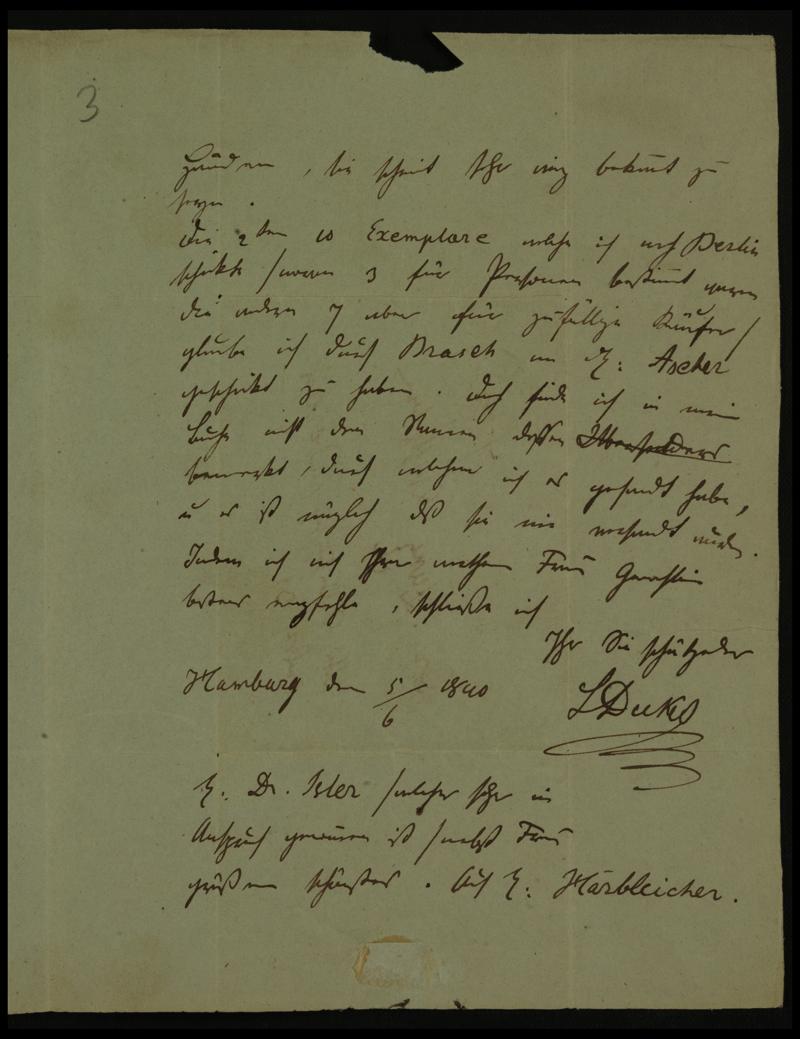 3
Händen, sie scheint sehr einz bekannt zu
seyn.
Die 2ten 10 Exemplare welche ich nach Berlin
schickte / wovon 3 für Personen bestimmt waren
die andern 7 aber für zufällige Käufer /
glaube ich durch Brasch an H: Ascher
geschickt zu haben. Doch finde ich in mein
Buche nicht den Namen dessen
bemerkt, durch welchen ich es gesandt habe,
u es ist möglich daß sie nie versandt wurden.
Indem ich mich Ihrer werthen Frau Gemahlin
bestens empfehle, schließe ich
Ihr Sie schätzender
Hamburg den 5/6 1840
LDukes
H: Dr. Isler / welcher sehr in
Anspruch genommen ist / nebst Frau
grüßen schönstens. Auch H: Harbleicher.